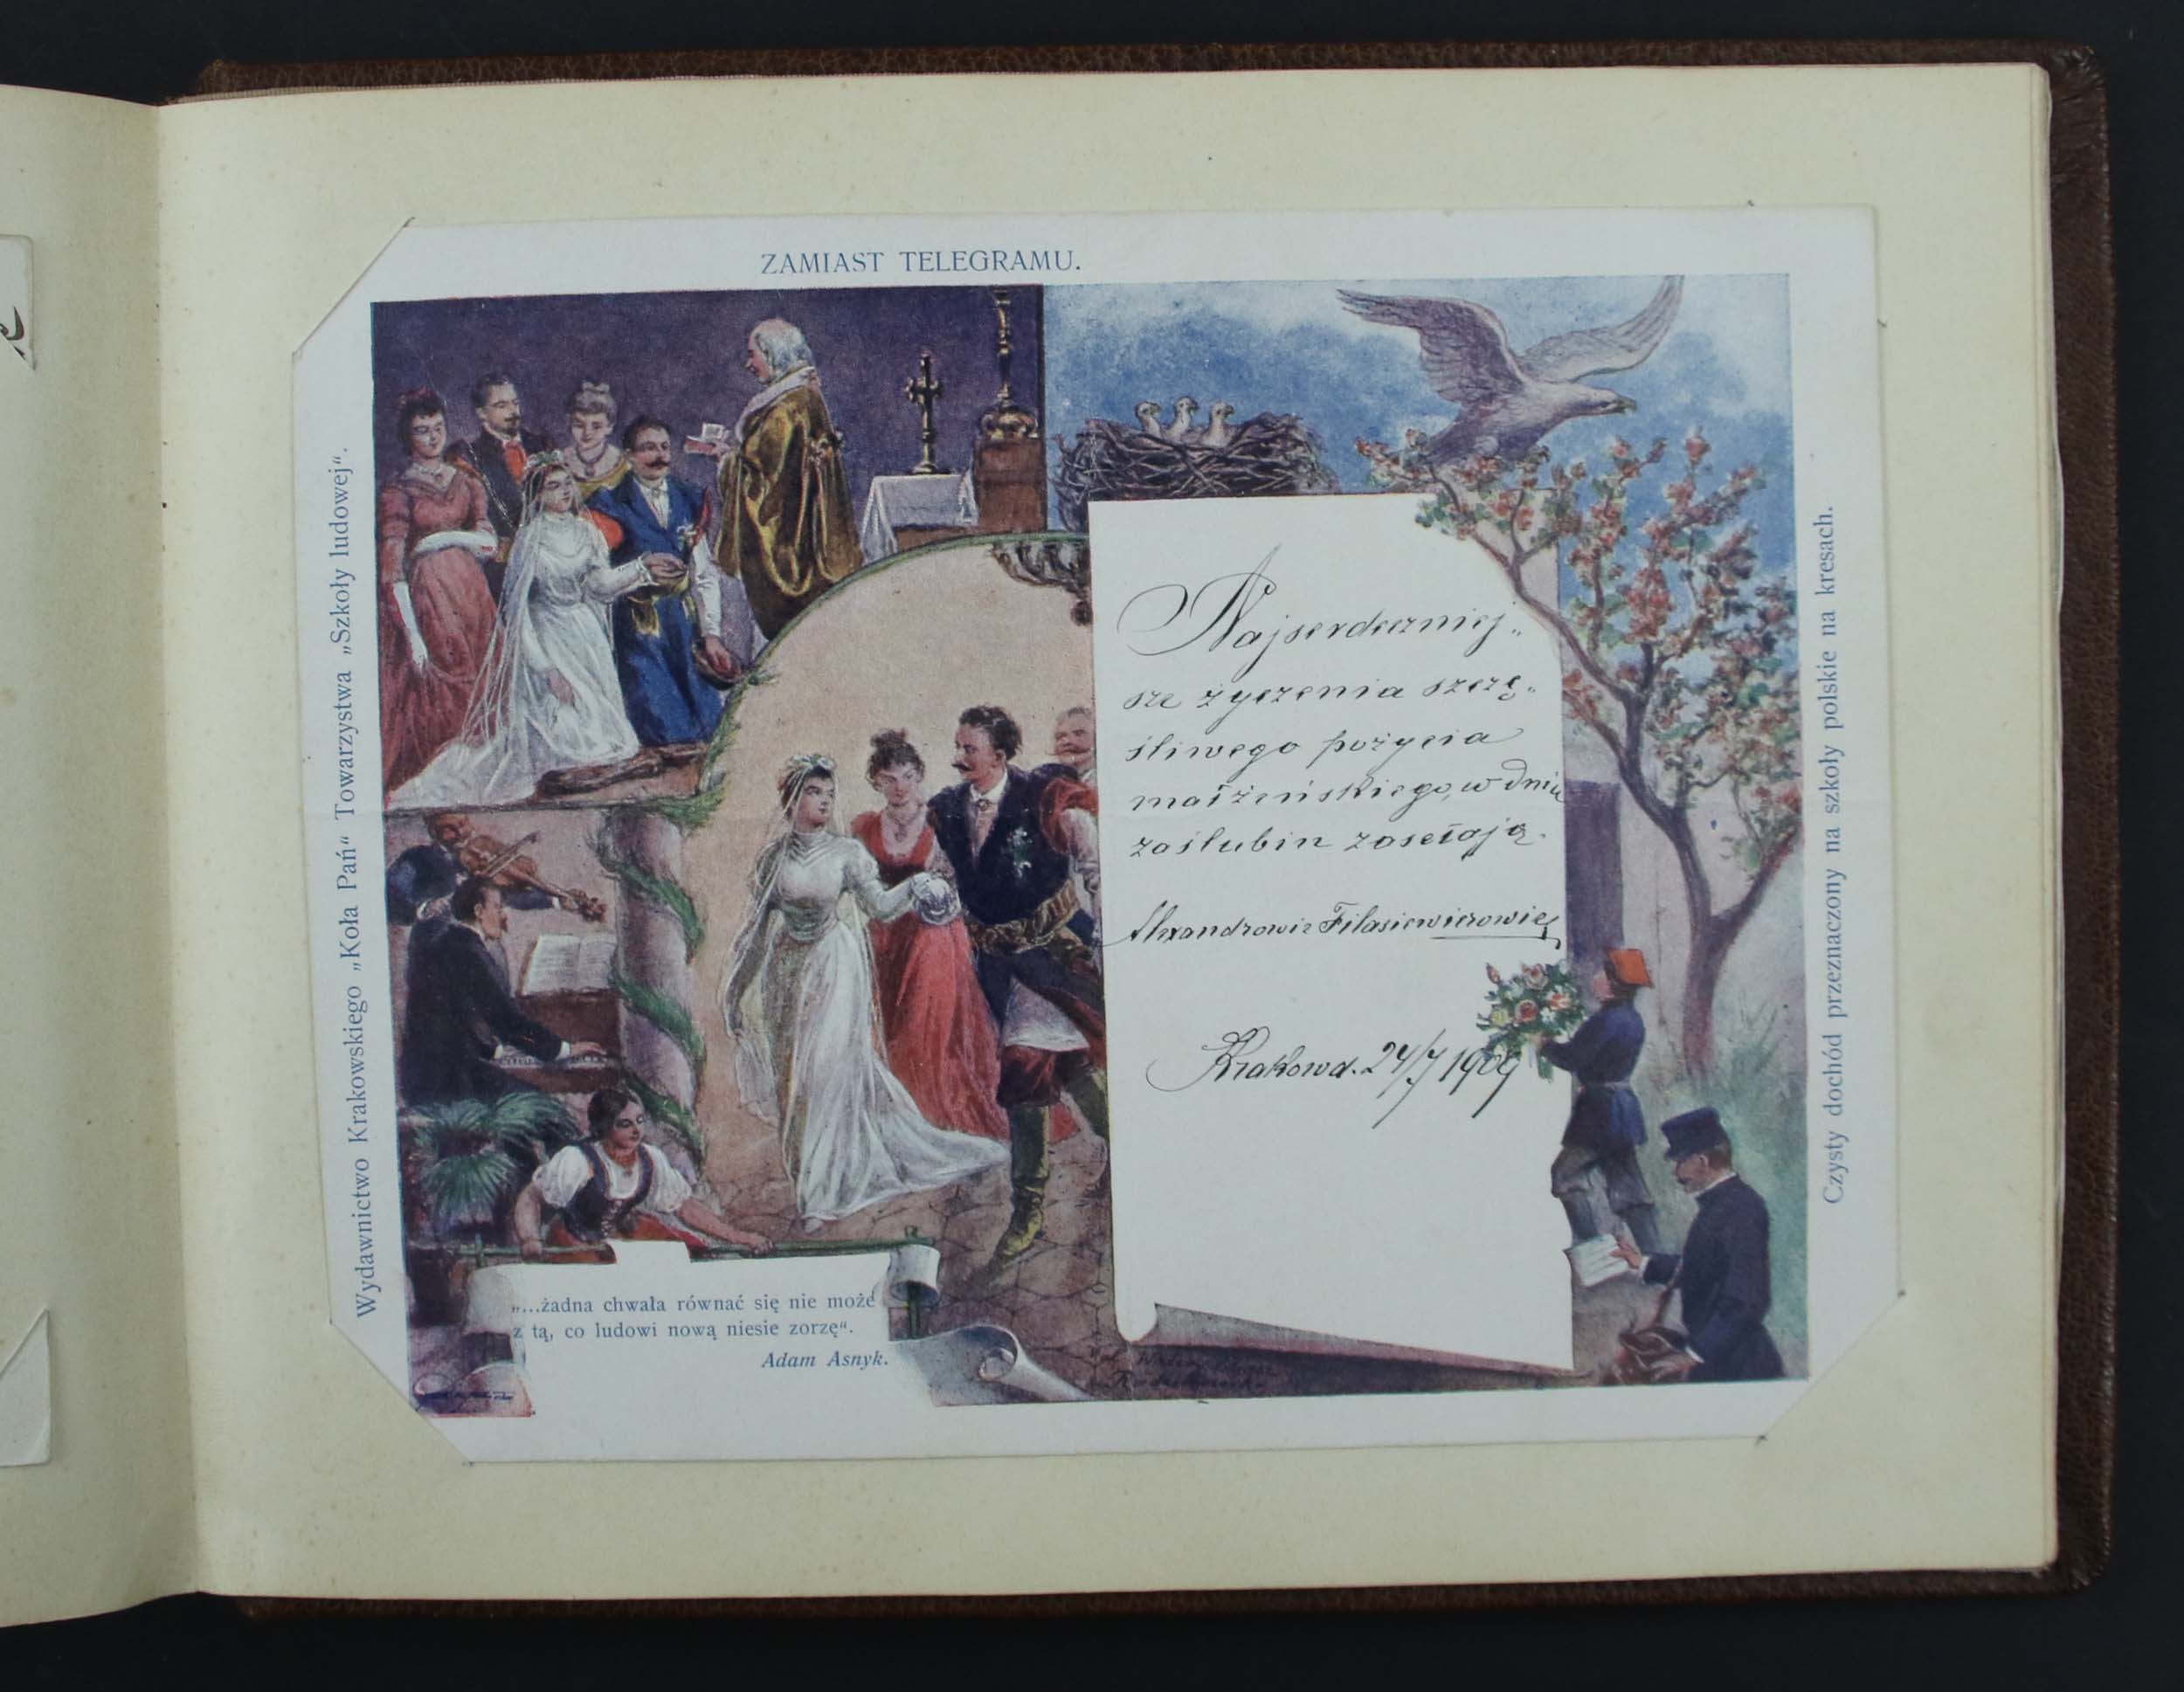 ZAMIAST TELEGRAMU.
Wydawnictwo Krakowskiego „Koła Pań“ Towarzystwa „Szkoły ludowej“.
Najserdeczniej„
sze życzenia szczę„
śliwego pożycia
małżeńskiego, w dniu
zaślubin zasełają
Alexandrowie Filasiewiczowie
Kraków d. 24/7 1909
„...żadna chwała równać się nie może
z tą, co ludowi nową niesie zorzę“.
Adam Asnyk.
Czysty dochód przeznaczony na szkoły polskie na kresach.